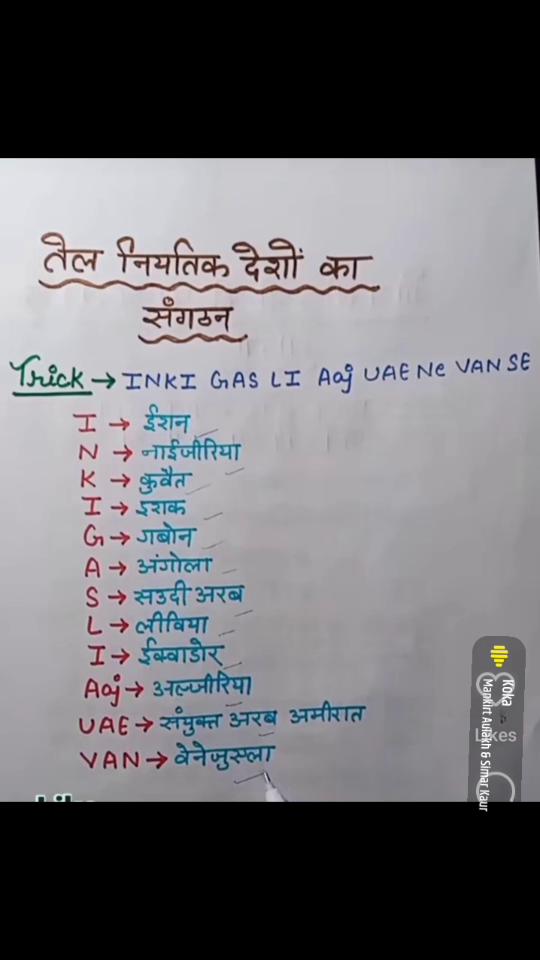 तेल नियतिक देशों का
संगठन
Trick → INKI GAS LI Aaj UAE Ne VAN SE
I → ईरान
N → नाईजीरिया
K → कुवैत
I → इराक
G → गबोन
A → अंगोला
S → सउदी अरब
L → लीविया
I → ईक्वाडोर
Aaj → अल्जीरिया
UAE → संयुक्त अरब अमीरात
VAN → वेनेजुस्ला
Koka
Mankirt Aulakh & Simar Kaur
Likes